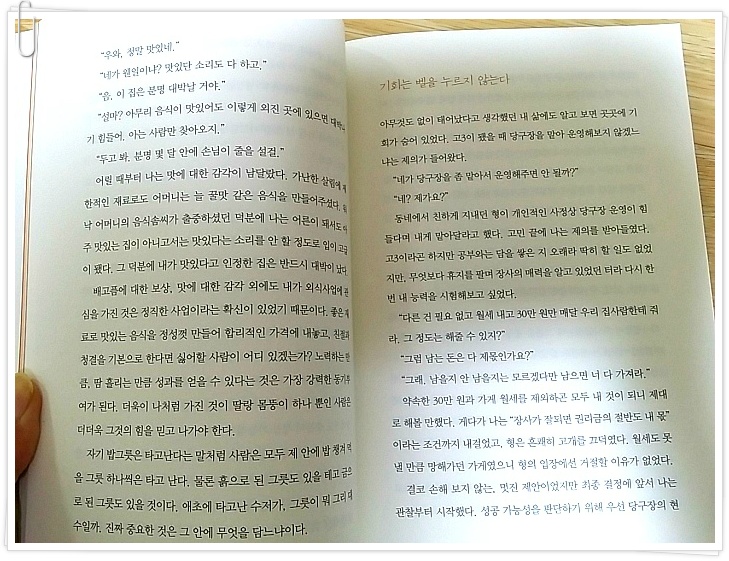 "우와, 정말 맛있네."
"네가 웬일이냐? 맛있단 소리도 다 하고."
"음, 이 집은 분명 대박날 거야."
"설마? 아무리 음식이 맛있어도 이렇게 외진 곳에 있으면 대박나
기 힘들어. 아는 사람만 찾아오지."
"두고 봐. 분명 몇 달 안에 손님이 줄을 설걸."
어릴 때부터 나는 맛에 대한 감각이 남달랐다. 가난한 살림에 제
한적인 재료로도 어머니는 늘 꿀맛 같은 음식을 만들어주셨다. 워
낙 어머니의 음식솜씨가 출중하셨던 덕분에 나는 어른이 돼서도 아
주 맛있는 집이 아니고서는 맛있다는 소리를 안 할 정도로 입이 고급
이 됐다. 그 덕분에 내가 맛있다고 인정한 집은 반드시 대박이 났다.
배고픔에 대한 보상, 맛에 대한 감각 외에도 내가 외식사업에 관
심을 가진 것은 정직한 사업이라는 확신이 있었기 때문이다. 좋은 재
료로 맛있는 음식을 정성껏 만들어 합리적인 가격에 내놓고, 친절과
청결을 기본으로 한다면 싫어할 사람이 어디 있겠는가? 노력하는 만
큼, 땀 흘리는 만큼 성과를 얻을 수 있다는 것은 가장 강력한 동기부
여가 된다. 더욱이 나처럼 가진 것이 딸랑 몸뚱이 하나 뿐인 사람은
더더욱 그것의 힘을 믿고 나가야 한다.
자기 밥그릇은 타고난다는 말처럼 사람은 모두 제 안에 밥 챙겨 먹
을 그릇 하나씩은 타고 난다. 물론 흙으로 된 그릇도 있을 테고 금으
로 된 그릇도 있을 것이다. 애초에 타고난 수저가, 그릇이 뭐 그리 대
수일까. 진짜 중요한 것은 그 안에 무엇을 담느냐이다.
기회는 벨을 누르지 않는다
아무것도 없이 태어났다고 생각했던 내 삶에도 알고 보면 곳곳에 기
회가 숨어 있었다. 고3이 됐을 때 당구장을 맡아 운영해보지 않겠느
냐는 제의가 들어왔다.
"네가 당구장을 좀 맡아서 운영해주면 안 될까?"
"네? 제가요?"
동네에서 친하게 지내던 형이 개인적인 사정상 당구장 운영이 힘
들다며 내게 맡아달라고 했다. 고민 끝에 나는 제의를 받아들였다.
고3이라곤 하지만 공부와는 담을 쌓은 지 오래라 딱히 할 일도 없었
지만, 무엇보다 휴지를 팔며 장사의 매력을 알고 있었던 터라 다시 한
번 내 능력을 시험해보고 싶었다.
"다른 건 필요 없고 월세 내고 30만 원만 매달 우리 집사람한테 줘
라. 그 정도는 해줄 수 있지?"
"그럼 남는 돈은 다 제몫인가요?"
"그래. 남을지 안 남을지는 모르겠다만 남으면 너 다 가져라."
약속한 30만 원과 가게 월세를 제외하곤 모두 내 것이 되니 제대
로 해볼 만했다. 게다가 나는 "장사가 잘되면 권리금의 절반도 내 몫"
이라는 조건까지 내걸었고, 형은 흔쾌히 고개를 끄덕였다. 월세도 못
낼 만큼 망해가던 가게였으니 형의 입장에선 거절할 이유가 없었다.
결코 손해 보지 않는, 멋진 제안이었지만 최종 결정에 앞서 나는
관찰부터 시작했다. 성공 가능성을 판단하기 위해 우선 당구장의 현